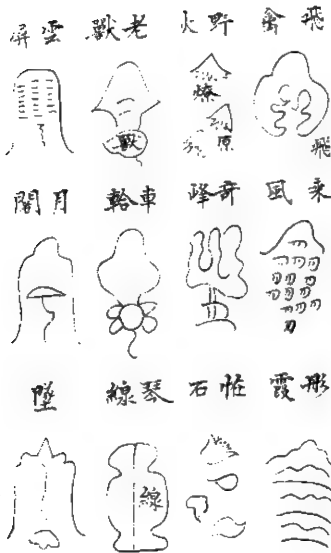 飛禽 野火 老獸 雲屏
飛 燎 原 獸
乘風 奇峰 車輪 月閣
彤霞 怪石 琴線 墜
線